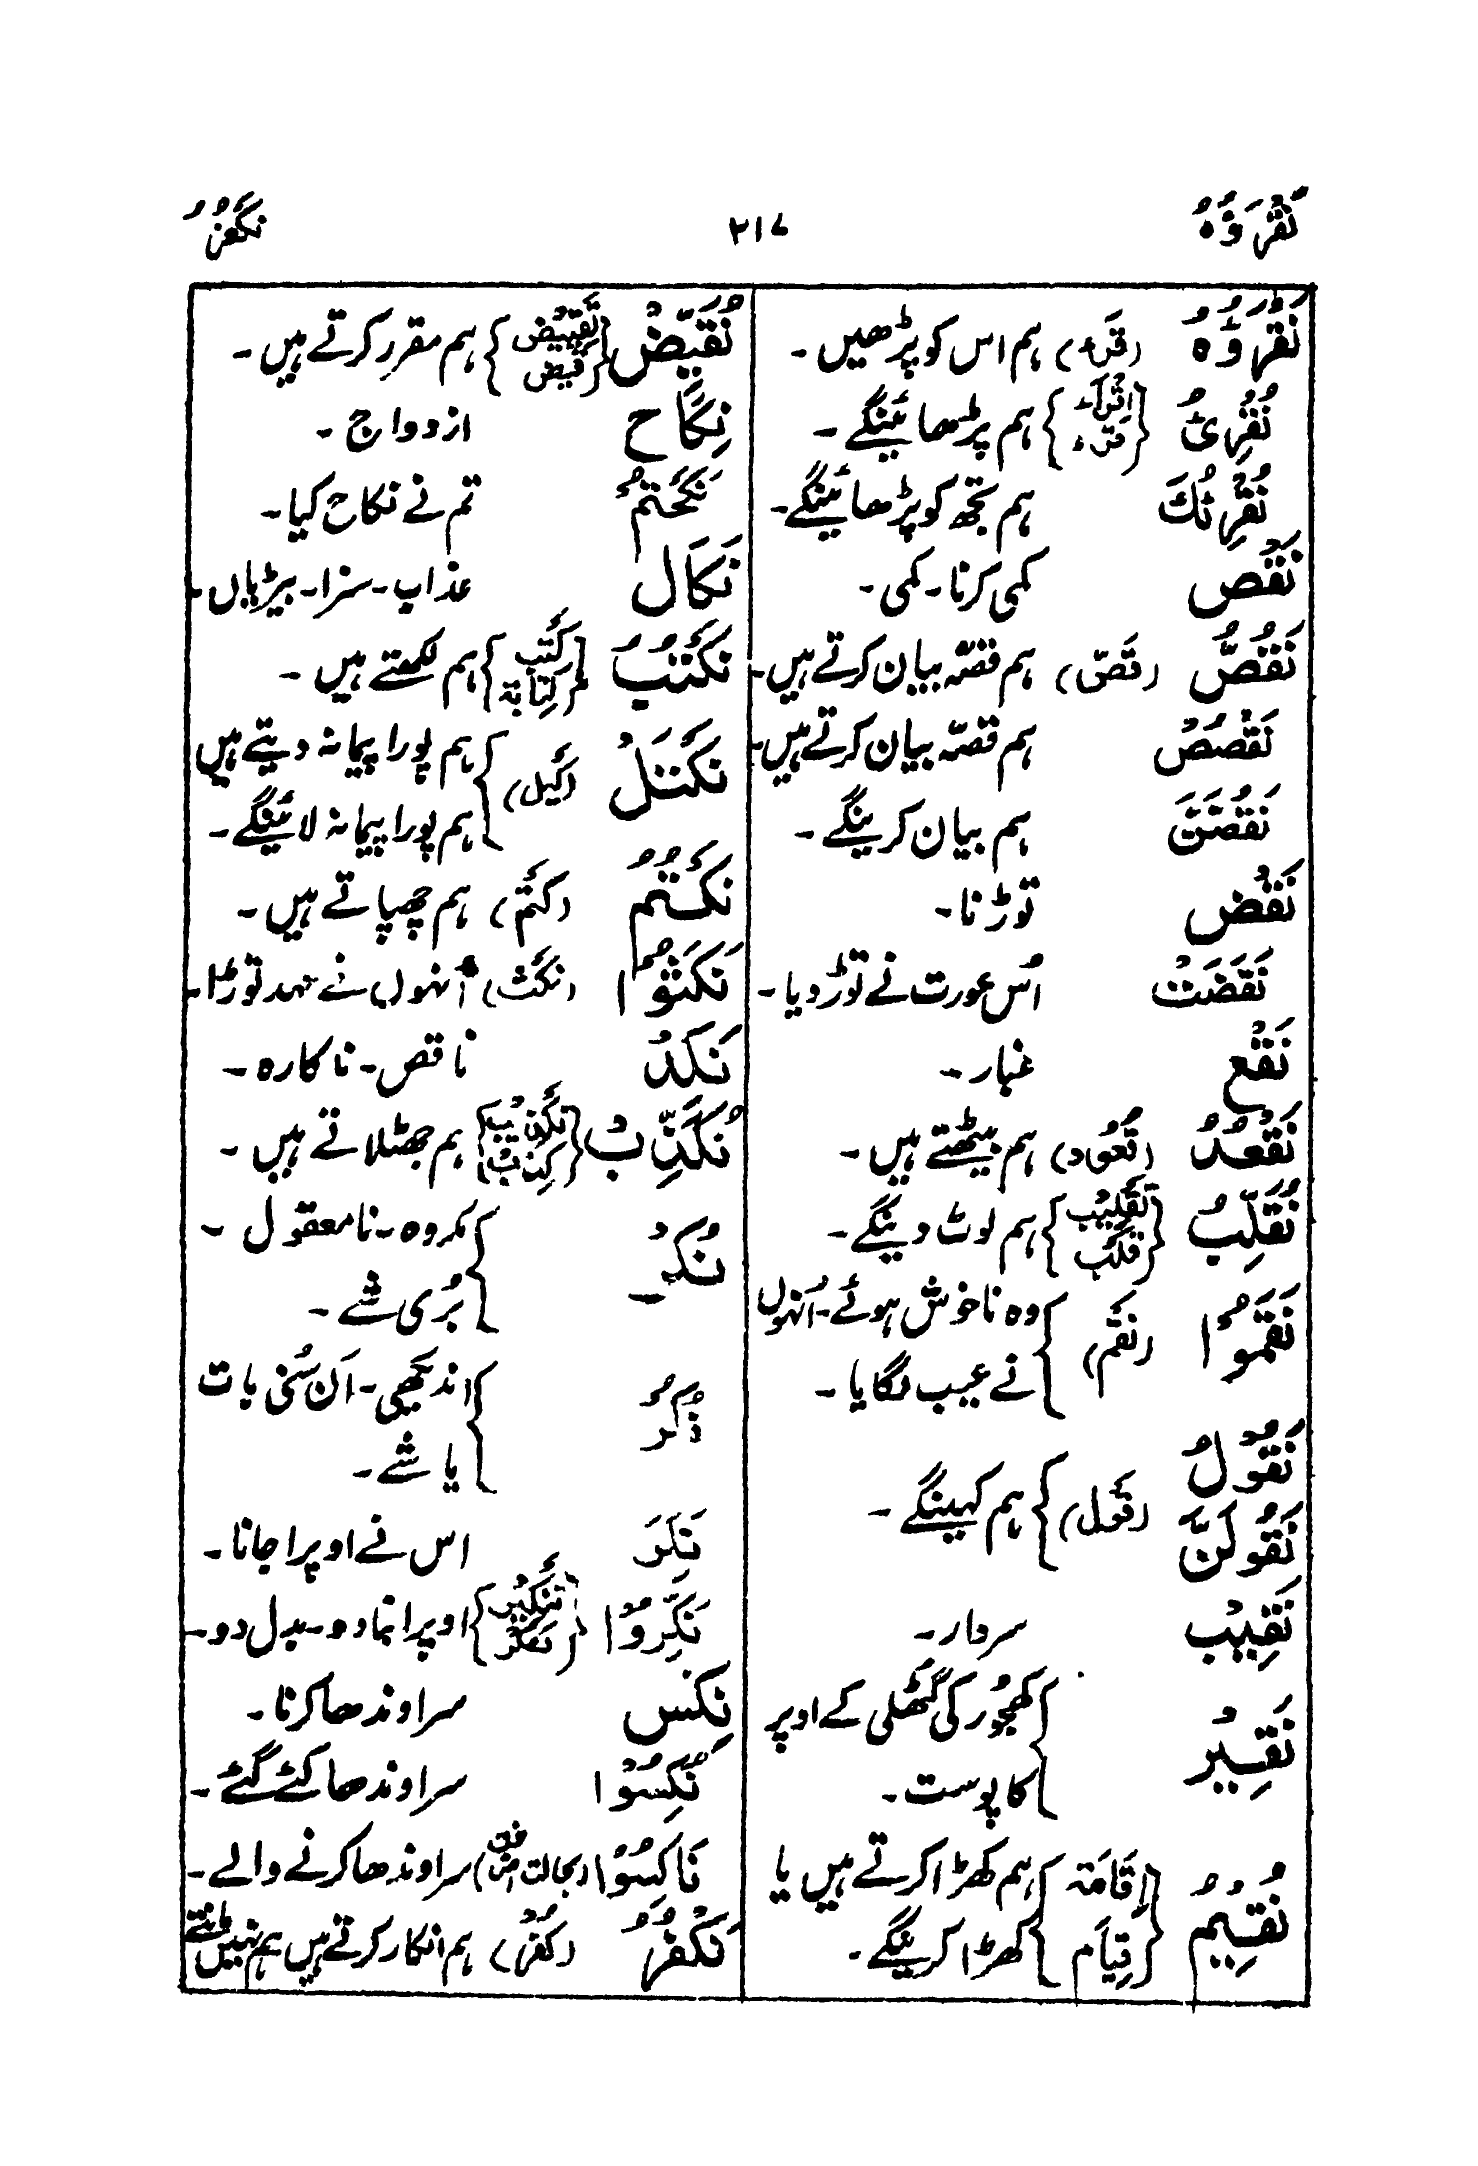 نَقْرَؤُهٗ ۲۱۷ نَکْفُرُ
نَقْرَؤُهٗ (قرء) ہم اس کو پڑھیں۔
نُقْرِئُ {اقراء قرء} ہم پڑھائینگے۔
نُقْرِئُكَ ہم تجھ کو پڑھائینگے۔
نَقْص کمی کرنا۔ کمی۔
نَقُصُّ (قَصّ) ہم قصّہ بیان کرتے ہیں۔
نَقْصُصُ ہم قصّہ بیان کرتے ہیں۔
نَقُصَّنَّ ہم بیان کرینگے۔
نَقْض توڑنا۔
نَقَضَتْ اُس عورت نے توڑ دیا۔
نَقْع غبار۔
نَقْعُدُ (قُعُود) ہم بیٹھتے ہیں۔
نُقَلِّبُ {تَقْلِیْب قَلْب} ہم لوٹ دینگے۔
نَقَمُوْا (نَقَم) وہ ناخوش ہوئے۔ اُنہوں
نے عیب لگایا۔
نَقُوْلُ
نَقُوْلَنَّ (قَوْل) ہم کہینگے۔
نَقِیْب سردار۔
نَقِیْر کھجور کی گٹھلی کے اوپر
کا پوست۔
نُقِیْمُ {اِقَامَة قِیَام} ہم کھڑا کرتے ہیں یا
کھڑا کرینگے۔
نُقَیِّضُ {تَقْیِیْض قَیْض} ہم مقرر کرتے ہیں۔
نِکَاح ازدواج۔
نَکَحْتُمْ تم نے نکاح کیا۔
نَکَال عذاب۔ سزا۔ بیڑیاں۔
نَکْتُبُ {کَتْب کِتَابَة} ہم لکھتے ہیں۔
نَکْتَلْ (کَیْل) ہم پورا پیمانہ دیتے ہیں
ہم پورا پیمانہ لائینگے۔
نَکْتُمُ (کَتْم) ہم چھپاتے ہیں۔
نَکَثُوْا (نَکْث) اُنہوں نے عہد توڑا۔
نَکَدُ ناقص۔ ناکارہ۔
نُکَذِّبُ {تَکْذِیْب کِذْب} ہم جھٹلاتے ہیں۔
نُکْر مکروہ۔ نامعقول۔
بُری شے۔
نُکُر اندیکھی۔ اَن سُنی بات
یا شے۔
نَکِرَ اس نے اوپرا جانا۔
نَکِّرُوْا {تَنْکِیْر نَکْر} اوپرا بنا دو۔ بدل دو۔
نِکْس سر اوندھا کرنا۔
نُکِسُوْا سر اوندھا کئے گئے۔
نَاکِسُوْا (بحالت) سر اوندھا کرنے والے۔
نَکْفُرُ (کُفْر) ہم انکار کرتے ہیں ہم نہیں مانتے